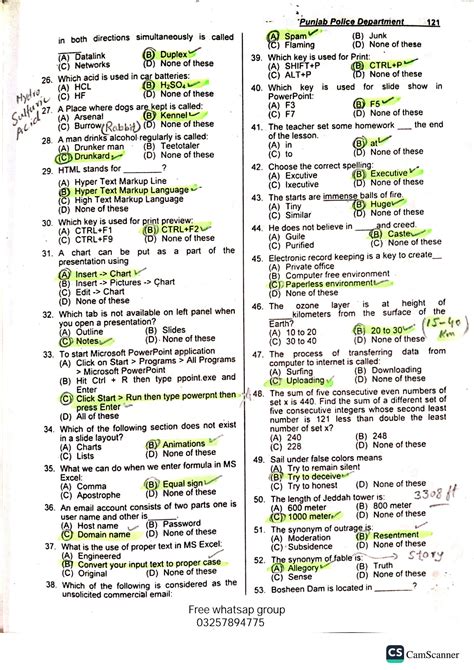 Punjab Police Department 121
in both directions simultaneously is called
(A) Datalink (B) Duplex
(C) Networks (D) None of these
26. Which acid is used in car batteries:
(A) HCL (B) H₂SO₄
(C) HF (D) None of these
Hydro
Sulfuric
Acid
27. A Place where dogs are kept is called:
(A) Arsenal (B) Kennel
(C) Burrow (Rabbit) (D) None of these
28. A man drinks alcohol regularly is called:
(A) Drunker man (B) Teetotaler
(C) Drunkard (D) None of these
29. HTML stands for ______?
(A) Hyper Text Markup Line
(B) Hyper Text Markup Language
(C) High Text Markup Language
(D) None of these
30. Which key is used for print preview:
(A) CTRL+F1 (B) CTRL+F2
(C) CTRL+F9 (D) None of these
31. A chart can be put as a part of the
presentation using
(A) Insert -> Chart
(B) Insert -> Pictures -> Chart
(C) Edit -> Chart
(D) None of these
32. Which tab is not available on left panel when
you open a presentation?
(A) Outline (B) Slides
(C) Notes (D) None of these
33. To start Microsoft PowerPoint application
(A) Click on Start > Programs > All Programs
> Microsoft PowerPoint
(B) Hit Ctrl + R then type ppoint.exe and
Enter
(C) Click Start > Run then type powerpnt then
press Enter
(D) All of these
34. Which of the following section does not exist
in a slide layout?
(A) Charts (B) Animations
(C) Lists (D) None of these
35. What we can do when we enter formula in MS
Excel:
(A) Comma (B) Equal sign
(C) Apostrophe (D) None of these
36. An email account consists of two parts one is
user name and other is______:
(A) Host name (B) Password
(C) Domain name (D) None of these
37. What is the use of proper text in MS Excel:
(A) Engineered
(B) Convert your input text to proper case
(C) Original (D) None of these
38. Which of the following is considered as the
unsolicited commercial email:
(A) Spam (B) Junk
(C) Flaming (D) None of these
39. Which key is used for Print:
(A) SHIFT+P (B) CTRL+P
(C) ALT+P (D) None of these
40. Which key is used for slide show in
PowerPoint:
(A) F3 (B) F5
(C) F7 (D) None of these
41. The teacher set some homework ___ the end
of the lesson.
(A) in (B) at
(C) to (D) None of these
42. Choose the correct spelling:
(A) Excutive (B) Executive
(C) Ixecutive (D) None of these
43. The starts are immense balls of fire.
(A) Tiny (B) Huge
(C) Similar (D) None of these
44. He does not believe in ____ and creed.
(A) Guile (B) Caste
(C) Purified (C) None of these
45. Electronic record keeping is a key to create__
(A) Private office
(B) Computer free environment
(C) Paperless environment
(D) None of these
46. The ozone layer is at height of
______kilometers from the surface of the
Earth?
(A) 10 to 20 (B) 20 to 30 (15-40
(C) 30 to 40 (D) None of these Km)
47. The process of transferring data from
computer to internet is called:
(A) Surfing (B) Downloading
(C) Uploading (D) None of these
48. The sum of five consecutive even numbers of
set x is 440. Find the sum of a different set of
five consecutive integers whose second least
number is 121 less than double the least
number of set x?
(A) 240 (B) 248
(C) 228 (D) None of these
49. Sail under false colors means
(A) Try to remain silent
(B) Try to deceive
(C) Try to honest (D) None of these
50. The length of Jeddah tower is: 3308 ft
(A) 600 meter (B) 800 meter
(C) 1000 meter (D) None of these
51. The synonym of outrage is:
(A) Moderation (B) Resentment
(C) Subsidence (D) None of these
52. The synonym of fable is: Story
(A) Allegory (B) Truth
(C) Sense (D) None of these
53. Bosheen Dam is located in ______?
Free whatsap group
03257894775
CS CamScanner